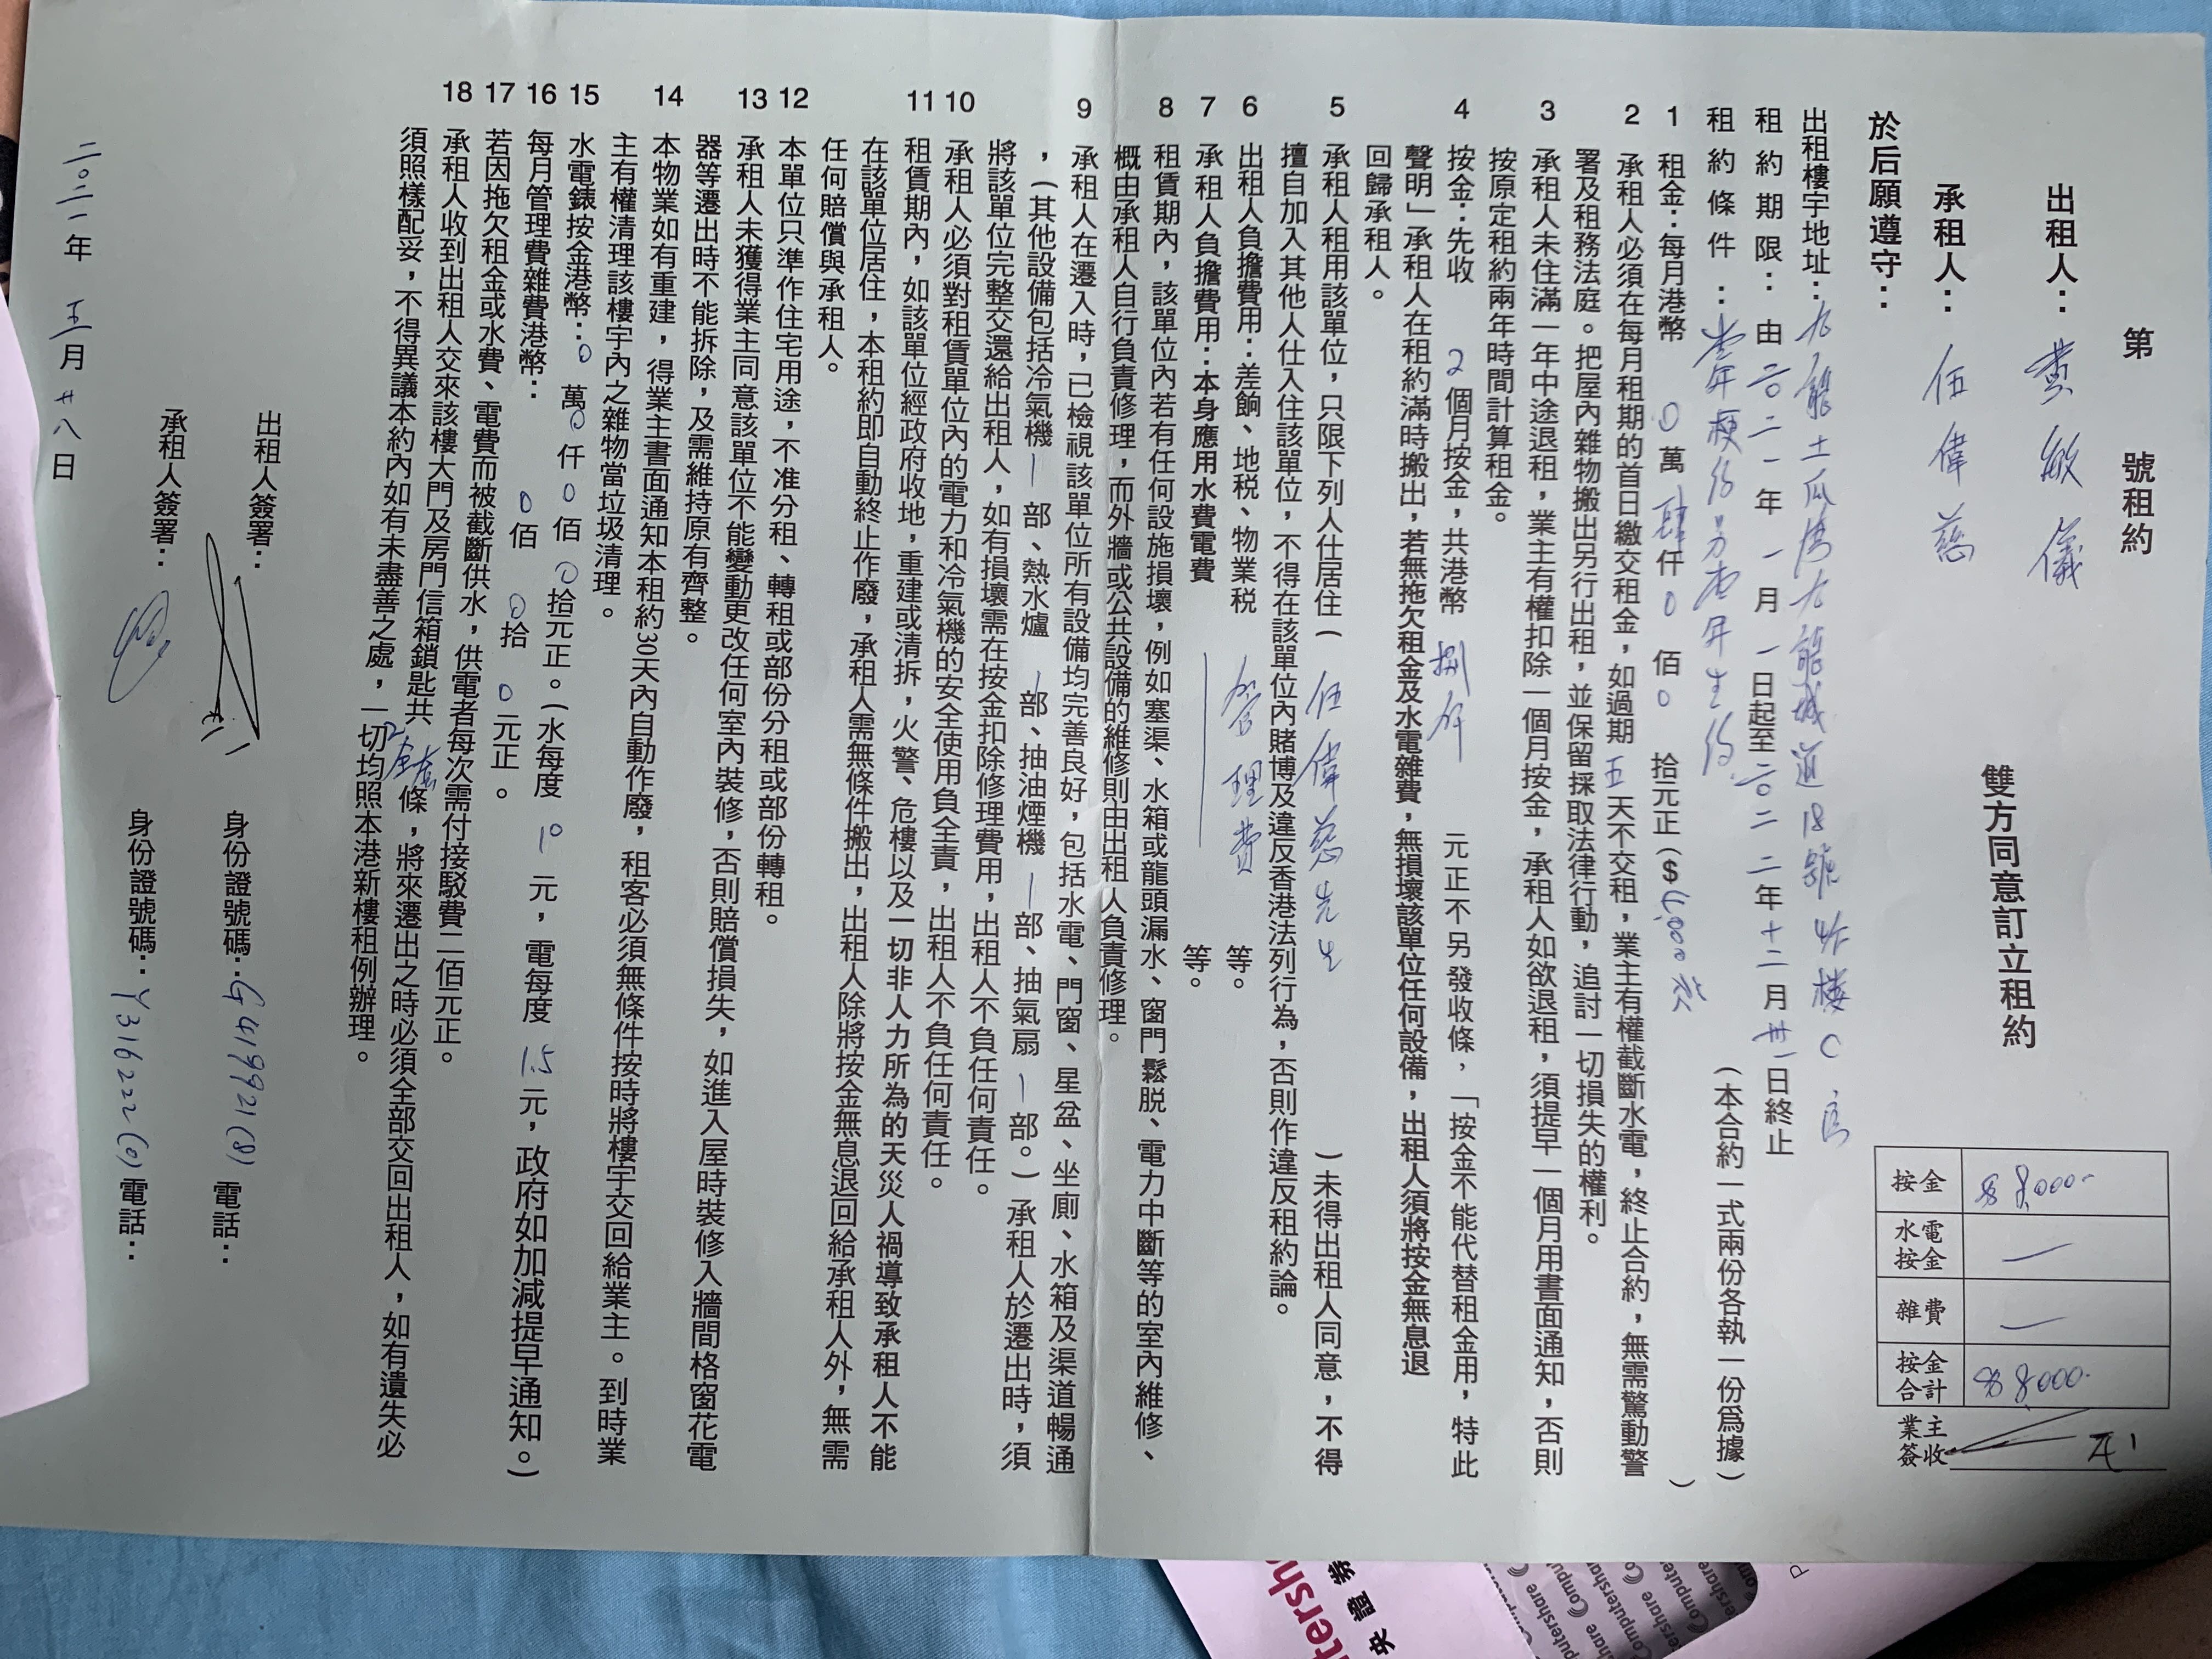 第　號租約
出租人：黄敏儀
承租人：伍偉慈
雙方同意訂立租約
於后願遵守：
按金 $8,000-
水電按金 —
雜費 —
按金合計 $8,000-
業主簽收
出租樓宇地址：九龍土瓜灣九龍城道18號4/F樓C座
租約期限：由二〇二一年一月一日起至二〇二二年十二月卅一日終止
租約條件：壹年梗約另壹年生約　(本合約一式兩份各執一份爲據)
1 租金：每月港幣 0 萬 肆 仟 0 佰 0 拾元正($4,000 )
2 承租人必須在每月租期的首日繳交租金，如過期 五 天不交租，業主有權截斷水電，終止合約，無需驚動警
署及租務法庭。把屋內雜物搬出另行出租，並保留採取法律行動，追討一切損失的權利。
3 承租人未住滿一年中途退租，業主有權扣除一個月按金，承租人如欲退租，須提早一個月用書面通知，否則
按原定租約兩年時間計算租金。
4 按金：先收 2 個月按金，共港幣 捌仟 元正不另發收條，「按金不能代替租金用，特此
聲明」承租人在租約滿時搬出，若無拖欠租金及水電雜費，無損壞該單位任何設備，出租人須將按金無息退
回歸承租人。
5 承租人租用該單位，只限下列人仕居住( 伍偉慈先生 )未得出租人同意，不得
擅自加入其他人仕入住該單位，不得在該單位內賭博及違反香港法列行為，否則作違反租約論。
6 出租人負擔費用：差餉、地税、物業税 管理費 等。
7 承租人負擔費用：本身應用水費電費 等。
8 租賃期內，該單位內若有任何設施損壞，例如塞渠、水箱或龍頭漏水、窗門鬆脱、電力中斷等的室內維修、
概由承租人自行負責修理，而外牆或公共設備的維修則由出租人負責修理。
9 承租人在遷入時，已檢視該單位所有設備均完善良好，包括水電、門窗、星盆、坐廁、水箱及渠道暢通
，(其他設備包括冷氣機 1 部、熱水爐 1 部、抽油煙機 1 部、抽氣扇 1 部。) 承租人於遷出時，須
將該單位完整交還給出租人，如有損壞需在按金扣除修理費用，出租人不負任何責任。
10 承租人必須對租賃單位內的電力和冷氣機的安全使用負全責，出租人不負任何責任。
11 租賃期內，如該單位經政府收地，重建或清拆，火警、危樓以及一切非人力所為的天災人禍導致承租人不能
在該單位居住，本租約即自動終止作廢，承租人需無條件搬出，出租人除將按金無息退回給承租人外，無需
任何賠償與承租人。
12 本單位只準作住宅用途，不准分租、轉租或部份分租或部份轉租。
13 承租人未獲得業主同意該單位不能變動更改任何室內裝修，否則賠償損失，如進入屋時裝修入牆間格窗花電
器等遷出時不能拆除，及需維持原有齊整。
14 本物業如有重建，得業主書面通知本租約30天內自動作廢，租客必須無條件按時將樓宇交回給業主。到時業
主有權清理該樓宇內之雜物當垃圾清理。
15 水電錶按金港幣：0 萬 0 仟 0 佰 0 拾元正。(水每度 10 元，電每度 1.5 元，政府如加減提早通知。)
16 每月管理費雜費港幣： 0 佰 0 拾 0 元正。
17 若因拖欠租金或水費、電費而被截斷供水，供電者每次需付接駁費二佰元正。
18 承租人收到出租人交來該樓大門及房門信箱鎖匙共 2全套 條，將來遷出之時必須全部交回出租人，如有遺失必
須照樣配妥，不得異議本約內如有未盡善之處，一切均照本港新樓租例辦理。
出租人簽署： 身份證號碼：G419921(8) 電話：
承租人簽署： 身份證號碼：Y316222(0) 電話：
二〇二一年 五 月 廿八 日
tersh
央證券
Computershare